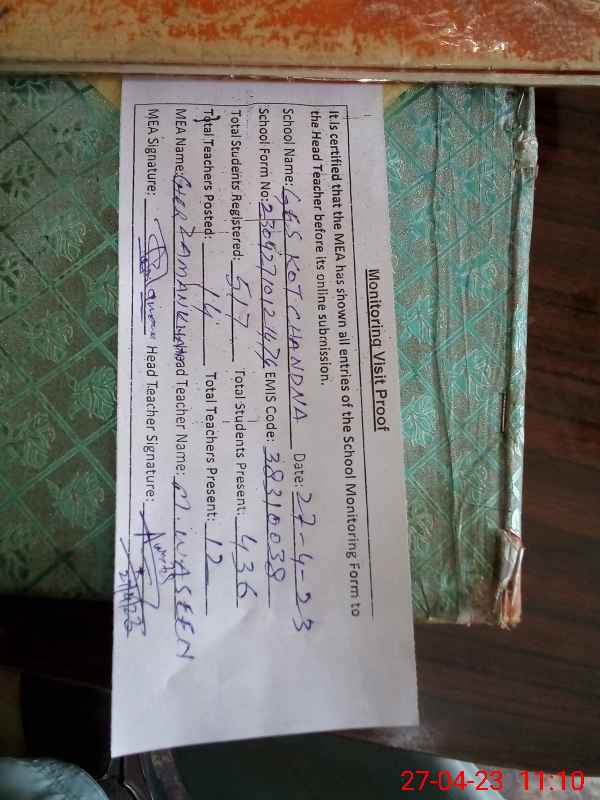 Monitoring Visit Proof
It is certified that the MEA has shown all entries of the School Monitoring Form to
the Head Teacher before its online submission.
School Name: GES KOT CHANDNA Date: 27-4-23
School Form No: EMIS Code: 38310038
Total Students Registered: 517 Total Students Present: 436
Total Teachers Posted: 14 Total Teachers Present: 12
MEA Name: Head Teacher Name: M. WASEEN
MEA Signature: Head Teacher Signature:
27-04-23 11:10